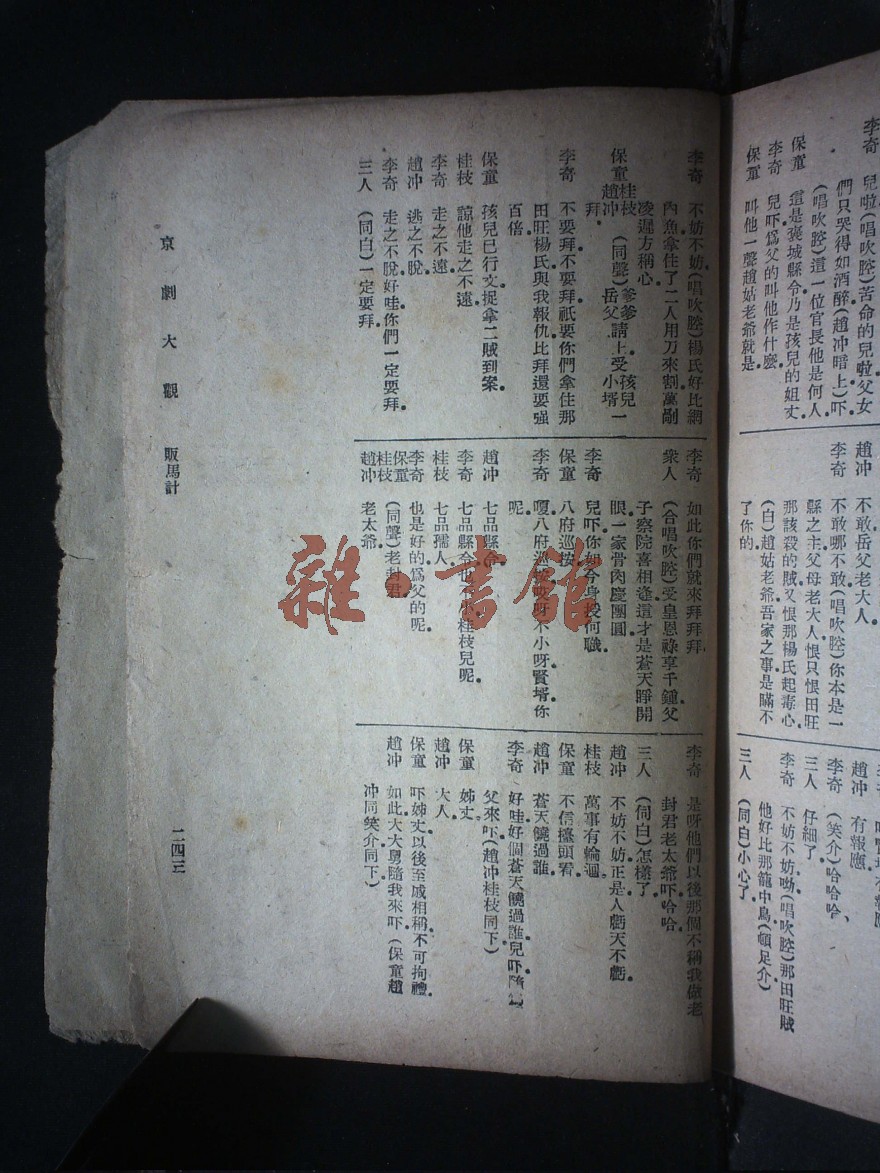 李奇 兒啦(唱吹腔)苦命的兒啦父女
們只哭得如酒醉(趙冲暗上)吓
(唱吹腔)這一位官長他是何人
保童 這是褒城縣令乃是孩兒的姐丈
李奇 兒吓爲父的叫他作什麽
保童 叫他一聲趙姑老爺就是
趙冲 不敢岳父老大人
李奇 不敢哪不敢(唱吹腔)你本是一
縣之主父母老大人恨只恨田旺
那該殺的賊又恨那楊氏起毒心
(白)趙姑老爺吾家之事是瞞不
了你的
趙冲 有報應
李奇 (笑介)哈哈哈、
三人 仔細了
李奇 不妨不妨呦(唱吹腔)那田旺賊
他好比那籠中鳥(頓足介)
三人 (同白)小心了
李奇 不妨不妨(唱吹腔)楊氏好比網
內魚拿住了二人用刀來割萬剮
凌遲方稱心
保童桂枝趙冲 (同聲)爹爹岳父請上受孩兒小壻一
拜
李奇 不要拜不要拜祇要你們拿住那
田旺楊氏與我報仇比拜還要强
百倍
保童 孩兒已行文捉拿二賊到案
桂枝 諒他走之不遠
李奇 走之不遠
趙冲 逃之不脫
李奇 走之不脫好哇你們一定要拜
三人 (同白)一定要拜
李奇 如此你們就來拜拜拜
衆人 (合唱吹腔)受皇恩祿享千鍾父
子察院喜相逢這才是蒼天睜開
眼一家骨肉慶團圓
李奇 兒吓你如今身授何職
保童 八府巡按
李奇 嗄八府巡按哎呀不小呀賢壻你
呢
趙冲 七品縣令
李奇 七品縣令也小桂枝兒呢
桂枝 七品孺人
李奇 也是好的爲父的呢
保童桂枝趙冲 (同聲)老封君
老太爺
李奇 是呀他們以後那個不稱我做老
封君老太爺吓哈哈
三人 (同白)怎樣了
趙冲 不妨不妨正是人虧天不虧
桂枝 萬事有輪迴
保童 不信擡頭看
趙冲 蒼天饒過誰
李奇 好哇好個蒼天饒過誰兒吓隨
父來吓(趙冲桂枝同下)
保童 姊丈
趙冲 大人
保童 吓姊丈以後至戚相稱不可拘禮
趙冲 如此大大舅隨我來吓(保童趙
冲同笑介同下)
京劇大觀 販馬計
二四三
雜書館